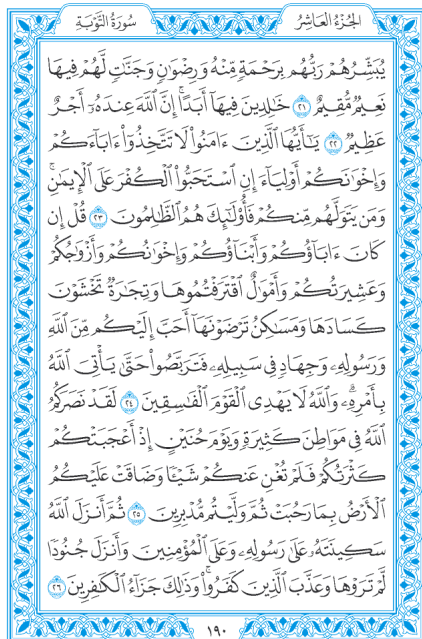 سُورَةُ التَّوْبَةِ
الجُزْءُ العَاشِرُ
يُبَشِّرُهُمْ رَبُّهُم بِرَحْمَةٍ مِّنْهُ وَرِضْوَانٍ وَجَنَّاتٍ لَّهُمْ فِيهَا
نَعِيمٌ مُّقِيمٌ ٢١ خَالِدِينَ فِيهَا أَبَدًا إِنَّ اللَّهَ عِندَهُۥ أَجْرٌ
عَظِيمٌ ٢٢ يَـٰٓأَيُّهَا الَّذِينَ ءَامَنُوا لَا تَتَّخِذُوٓا ءَابَآءَكُمْ
وَإِخْوَانَكُمْ أَوْلِيَآءَ إِنِ اسْتَحَبُّوا الْكُفْرَ عَلَى الْإِيمَـٰنِ ۚ
وَمَن يَتَوَلَّهُم مِّنكُمْ فَأُولَـٰٓئِكَ هُمُ الظَّـٰلِمُونَ ٢٣ قُلْ إِن
كَانَ ءَابَآؤُكُمْ وَأَبْنَآؤُكُمْ وَإِخْوَانُكُمْ وَأَزْوَاجُكُمْ
وَعَشِيرَتُكُمْ وَأَمْوَالٌ اقْتَرَفْتُمُوهَا وَتِجَـٰرَةٌ تَخْشَوْنَ
كَسَادَهَا وَمَسَـٰكِنُ تَرْضَوْنَهَآ أَحَبَّ إِلَيْكُم مِّنَ اللَّهِ
وَرَسُولِهِۦ وَجِهَادٍ فِي سَبِيلِهِۦ فَتَرَبَّصُوا حَتَّىٰ يَأْتِيَ اللَّهُ
بِأَمْرِهِۦ ۗ وَاللَّهُ لَا يَهْدِي الْقَوْمَ الْفَـٰسِقِينَ ٢٤ لَقَدْ نَصَرَكُمُ
اللَّهُ فِي مَوَاطِنَ كَثِيرَةٍ وَيَوْمَ حُنَيْنٍ إِذْ أَعْجَبَتْكُمْ
كَثْرَتُكُمْ فَلَمْ تُغْنِ عَنكُمْ شَيْـًٔا وَضَاقَتْ عَلَيْكُمُ
الْأَرْضُ بِمَا رَحُبَتْ ثُمَّ وَلَّيْتُم مُّدْبِرِينَ ٢٥ ثُمَّ أَنزَلَ اللَّهُ
سَكِينَتَهُۥ عَلَىٰ رَسُولِهِۦ وَعَلَى الْمُؤْمِنِينَ وَأَنزَلَ جُنُودًا
لَّمْ تَرَوْهَا وَعَذَّبَ الَّذِينَ كَفَرُوا ۚ وَذَٰلِكَ جَزَآءُ الْكَـٰفِرِينَ ٢٦
١٩٠